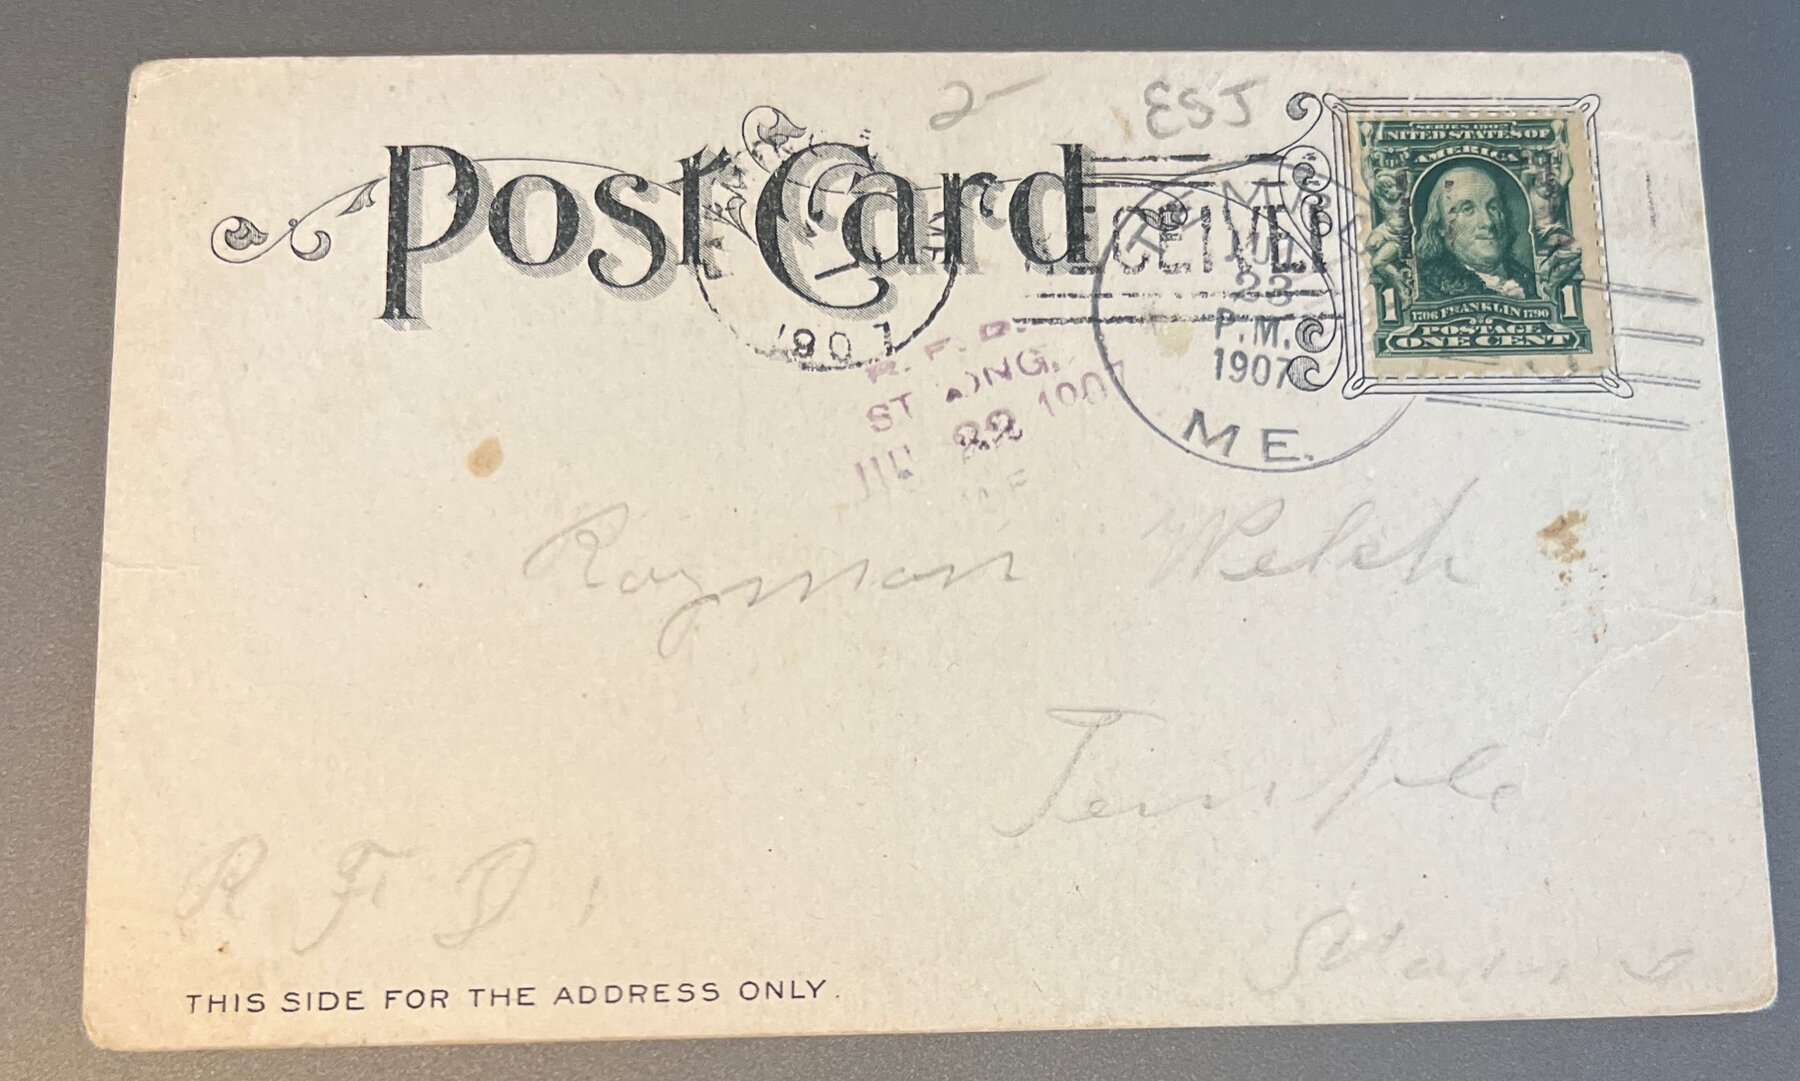 2- ESJ
Post Card
SERIES 1902
UNITED STATES OF
AMERICA
1 1
1706 FRANKLIN 1790
POSTAGE
ONE CENT
RECEIVED
1907
JUL
23
P.M.
1907
ME.
R. F. D.
ST
22 1907
Raymon Welch
Temple
R. F. D. 1
Maine
THIS SIDE FOR THE ADDRESS ONLY.